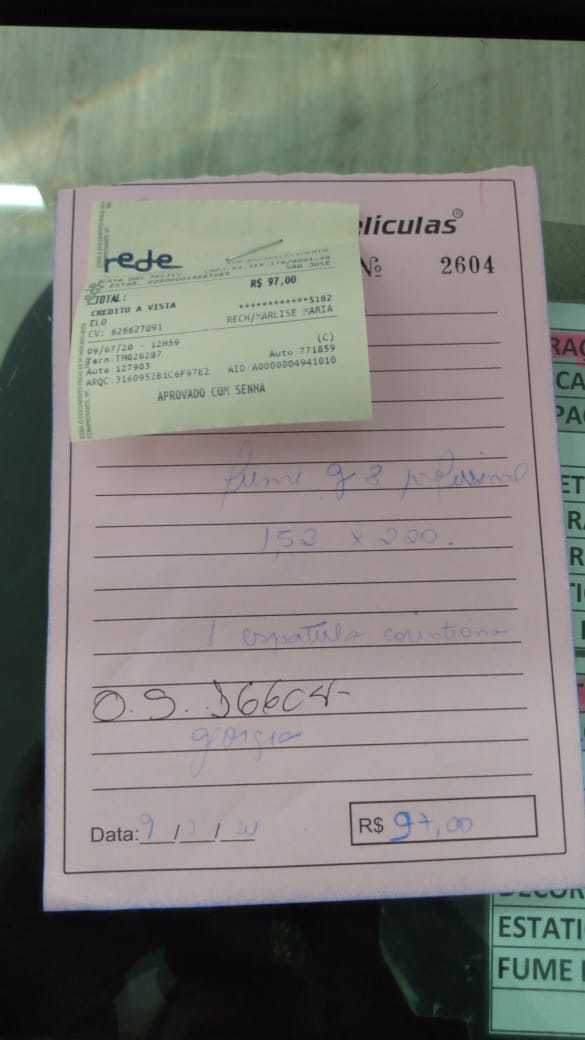 elículas®
Nº 2604
rede
SAO JOSE
R$ 97,00
TOTAL:
CREDITO A VISTA
ELO
************5182
CV: 626627091
RECH/MARLISE MARIA
09/07/20 - 12H59
(C)
Term:TM020287
Auto:771859
Aute 127903
AID:A0000004941010
ARQC:3160952B1C6F97E2
APROVADO COM SENHA
fume g 8 profissional
1,52 x 200.
1 espatula corintiana
O.S. 16604
georgia
Data: 9/ / 20
R$ 97,00
RAÇ
CA
PA
ET
RA
R
ESTATI
FUME